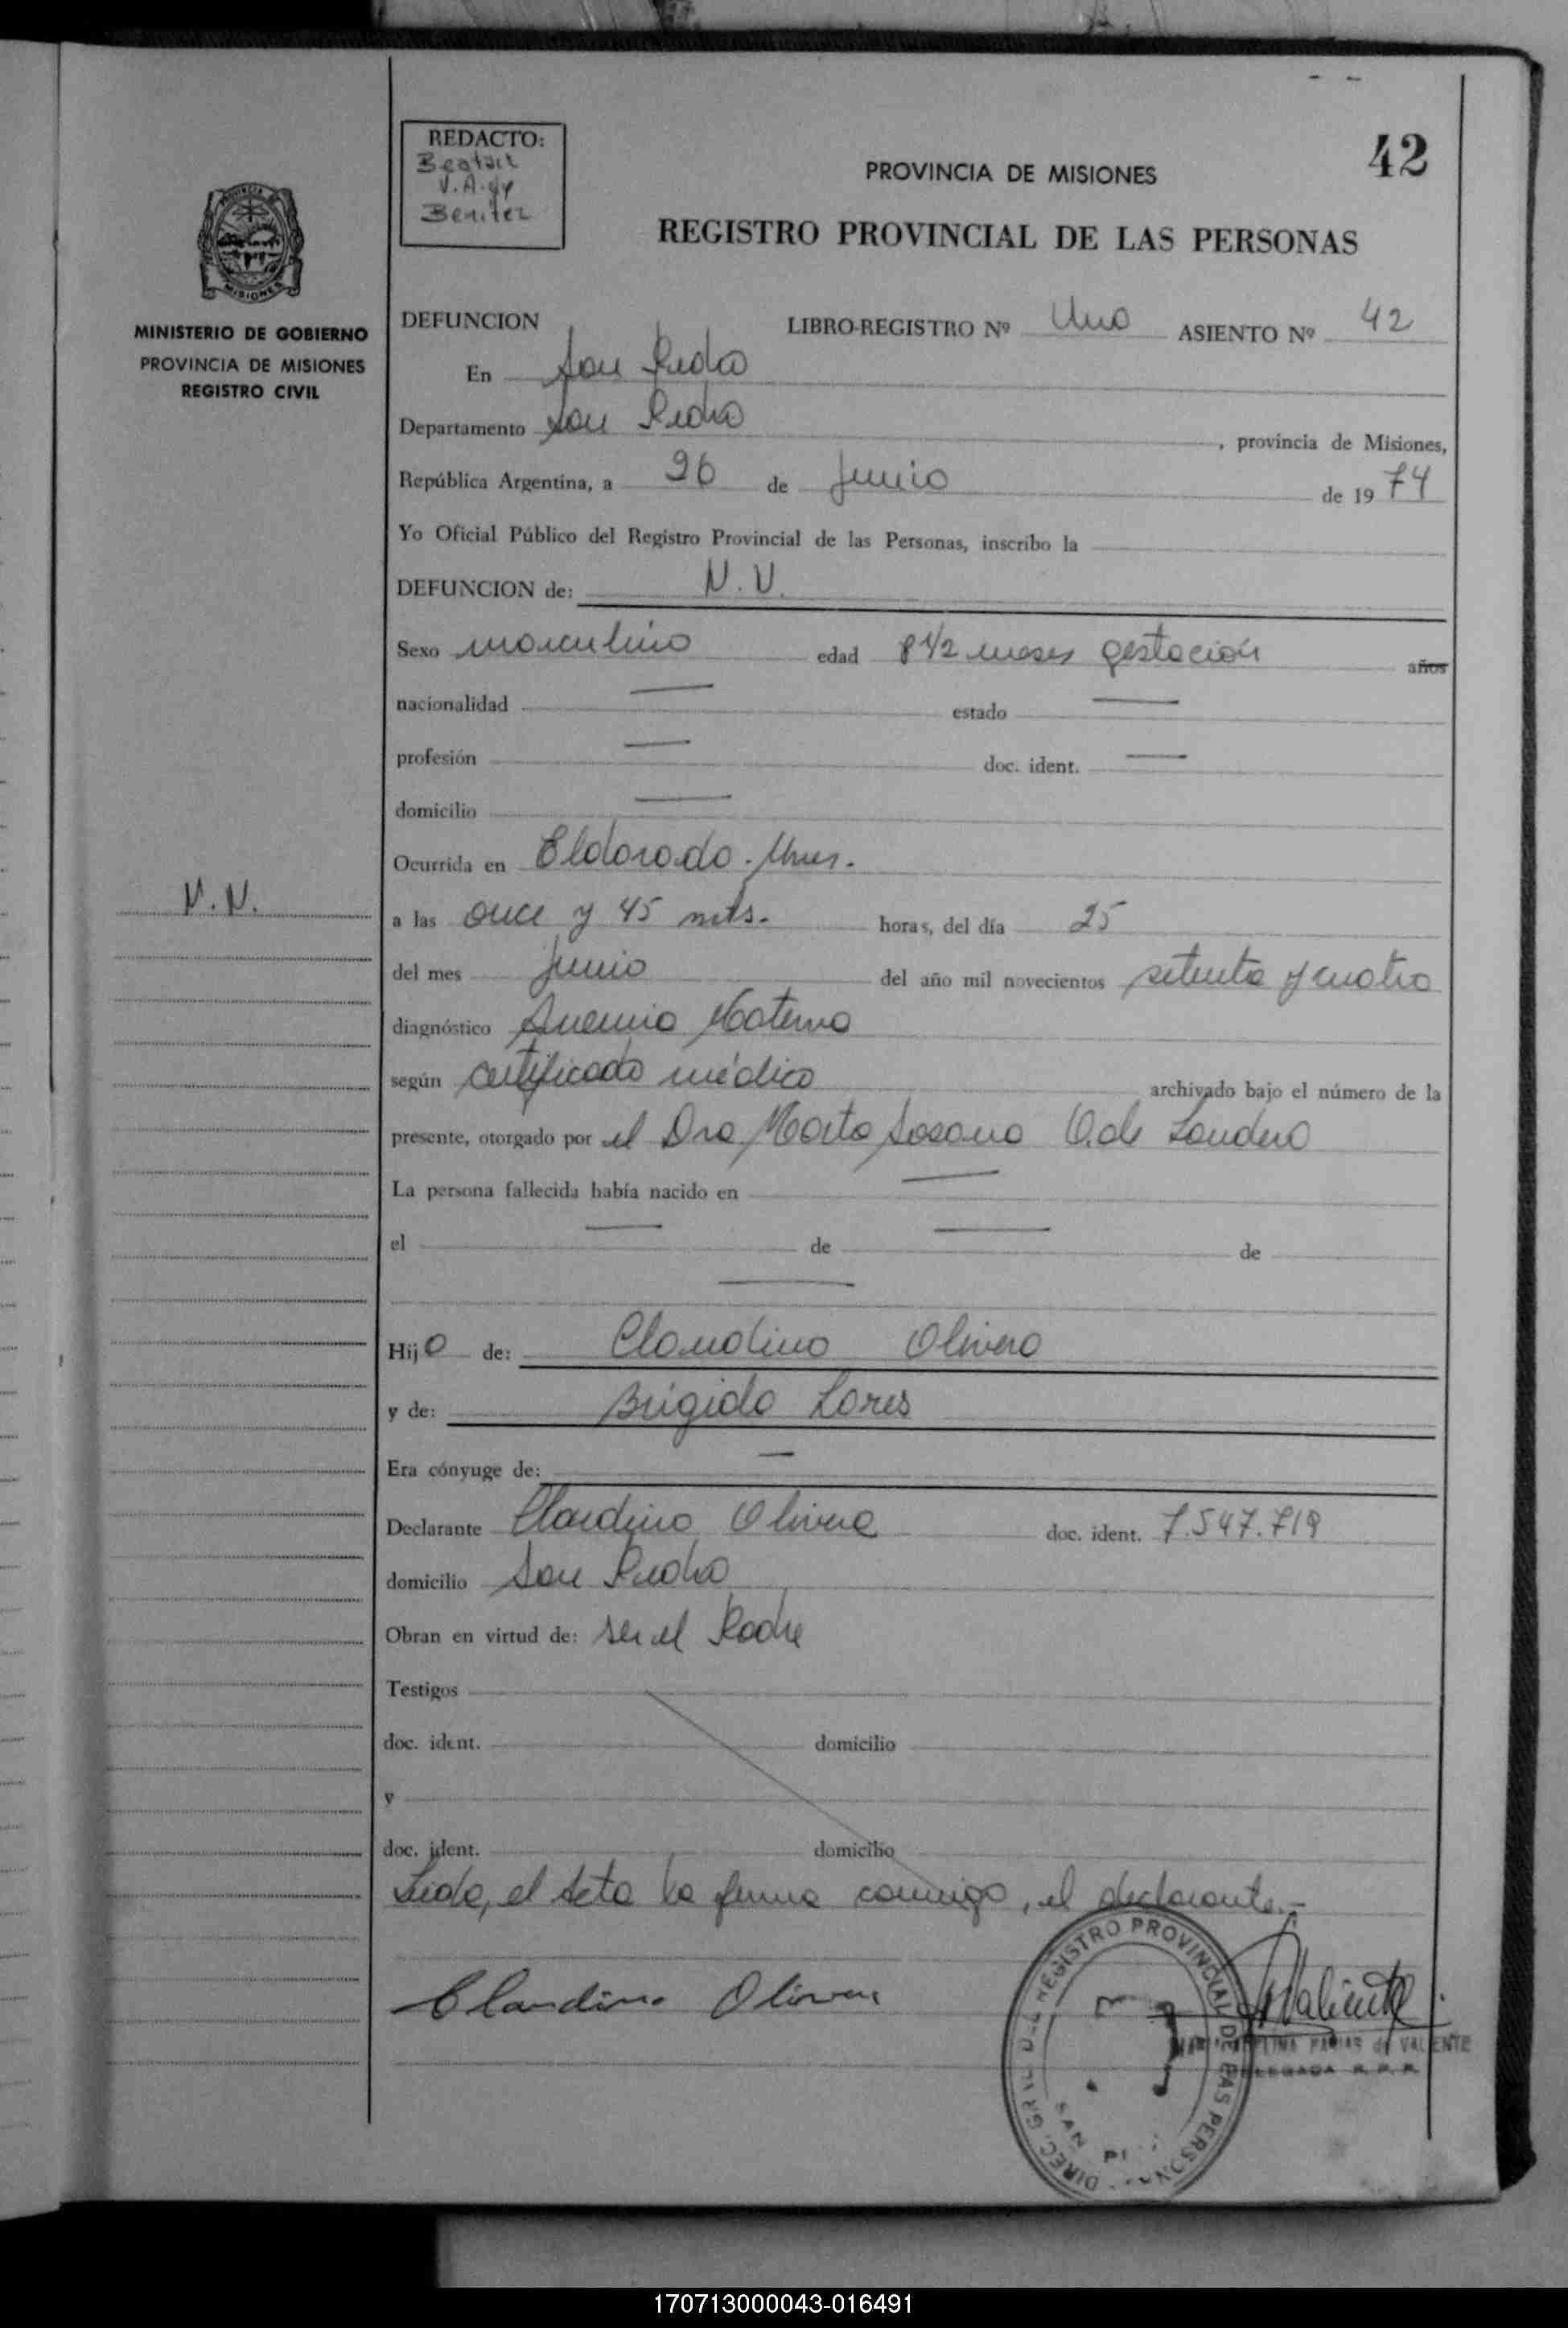 REDACTO:
Beatriz
V. A. de
Benitez
42
PROVINCIA DE MISIONES
REGISTRO PROVINCIAL DE LAS PERSONAS
MISIONES
MINISTERIO DE GOBIERNO
PROVINCIA DE MISIONES
REGISTRO CIVIL
DEFUNCION LIBRO-REGISTRO Nº Uno ASIENTO Nº 42
En San Pedro
Departamento San Pedro, provincia de Misiones,
República Argentina, a 26 de Junio de 1974
Yo Oficial Público del Registro Provincial de las Personas, inscribo la
DEFUNCION de: N. N.
Sexo masculino edad 8 1/2 meses gestación años
nacionalidad — estado —
profesión — doc. ident. —
domicilio —
Ocurrida en Eldorado. Mnes.
N. N.
a las once y 45 mts. horas, del día 25
del mes junio del año mil novecientos setenta y cuatro
diagnóstico Anemia Materna
según certificado médico archivado bajo el número de la
presente, otorgado por el Dra Marta Susana O. de Landero
La persona fallecida había nacido en —
el — de — de
—
Hijo de: Claudino Olivera
y de: Brigida Lores
Era cónyuge de: —
Declarante Claudino Olivera doc. ident. 7.547.719
domicilio San Pedro
Obran en virtud de: ser el Padre
Testigos
doc. ident. domicilio
y
doc. ident. domicilio
Leida, el acta la firma conmigo, el declarante.-
Claudino Olivera
Valiente
DIREC. GRAL. DEL REGISTRO PROVINCIAL DE LAS PERSONAS
SAN
FARIAS de VALIENTE
DELEGADA R. P. P.
170713000043-016491